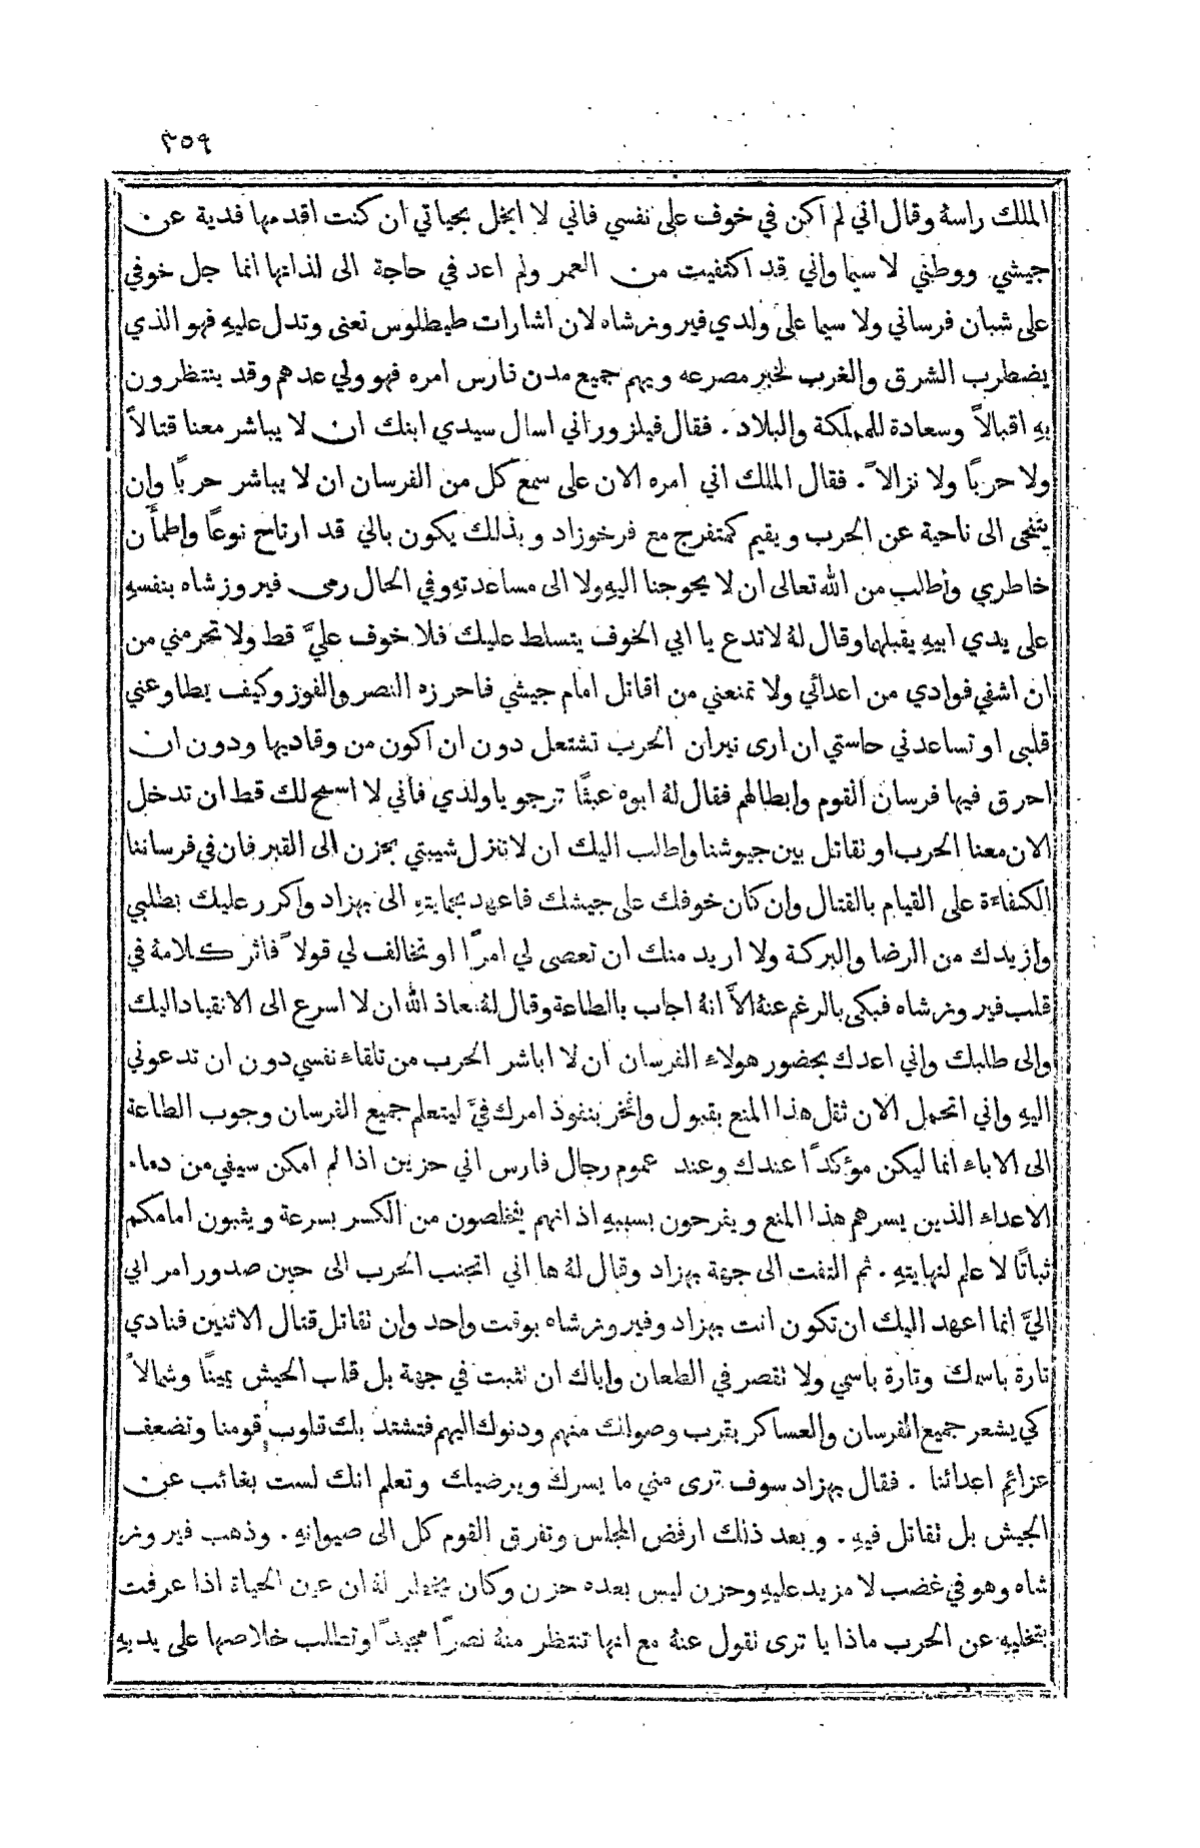 ٣٥٩
الملك راسهُ وقال اني لم اكن في خوف على نفسي فاني لا ابخل بحياتي ان كنت اقدمها فدية عن
جيشي ووطني لا سيما واني قد اكتفيت من العمر ولم اعد في حاجة الى لذاتها انما جل خوفي
على شبان فرساني ولا سيما على ولدي فيروزشاه لان اشارات طيطلوس تعنى وتدل عليهِ فهو الذي
يضطرب الشرق والغرب لخبر مصرعه ويهم جميع مدن فارس امره فهو ولي عدهم وقد ينتظرون
بهِ اقبالاً وسعادة للمملكة والبلاد . فقال فيلزور اني اسال سيدي ابنك ان لا يباشر معنا قتالاً
ولا حربًا ولا نزالاً . فقال الملك اني امره الان على سمع كل من الفرسان ان لا يباشر حربًا وإن
يتنحى الى ناحية عن الحرب ويقيم كمتفرج مع فرخوزاد وبذلك يكون بالي قد ارتاح نوعًا واطمأن
خاطري واطلب من الله تعالى ان لا يحوجنا اليهِ ولا الى مساعدتهِ وفي الحال رمى فيروزشاه بنفسهِ
على يدي ابيهِ يقبلها وقال لهُ لا تدع يا ابي الخوف يتسلط عليك فلا خوف عليَّ قط ولا تحرمني من
ان اشفي فوادي من اعدائي ولا تمنعني من اقاتل امام جيشي فاحرزه النصر والفوز وكيف يطاوعني
قلبي او تساعدني حاستي ان ارى نيران الحرب تشتعل دون ان اكون من وقاديها ودون ان
احرق فيها فرسان القوم وابطالهم فقال لهُ ابوه عبثًا ترجو يا ولدي فاني لا اسمح لك قط ان تدخل
الان معنا الحرب او تقاتل بين جيوشنا واطلب اليك ان لا تنزل شيبتي بحزن الى القبر فان في فرساننا
الكفاءة على القيام بالقتال وإن كان خوفك على جيشك فاعهد بحمايتهِ الى بهزاد واكرر عليك بطلبي
وازيدك من الرضا والبركة ولا اريد منك ان تعصى لي امرًا او تخالف لي قولاً فاثر كلامهُ في
قلب فيروزشاه فبكى بالرغم عنهُ الاَّ انهُ اجاب بالطاعة وقال لهُ معاذ الله ان لا اسرع الى الانقياد اليك
والى طلبك واني اعدك بحضور هولاء الفرسان ان لا اباشر الحرب من تلقاء نفسي دون ان تدعوني
اليهِ واني اتحمل الان ثقل هذا المنع بقبول وافخر بنفوذ امرك فيَّ ليتعلم جميع الفرسان وجوب الطاعة
الى الاباء انما ليكن مؤكدًا عندك وعند عموم رجال فارس اني حزين اذا لم امكن سيفي من دماء
الاعداء الذين يسرهم هذا المنع ويفرحون بسببهِ اذ انهم يتخلصون من الكسر بسرعة ويثبون امامكم
ثباتًا لا علم لنهايتهِ . ثم التفت الى جهة بهزاد وقال لهُ ها اني اتجنب الحرب الى حين صدور امر ابي
اليَّ انما اعهد اليك ان تكون انت بهزاد وفيروزشاه بوقت واحد وإن تقاتل قتال الاثنين فنادي
تارة باسمك وتارة باسمي ولا تقصر في الطعان واياك ان تثبت في جهة بل قلب الجيش يمينًا وشمالاً
كي يشعر جميع الفرسان والعساكر بقرب وصولك منهم ودنوك اليهم فتشتد بك قلوب قومنا وتضعف
عزائم اعدائنا . فقال بهزاد سوف ترى مني ما يسرك ويرضيك وتعلم انك لست بغائب عن
الجيش بل تقاتل فيهِ . وبعد ذلك ارفض المجلس وتفرق القوم كل الى صيوانهِ . وذهب فيروز
شاه وهو في غضب لا مزيد عليهِ وحزن ليس بعده حزن وكان يخطر لهُ ان عين الحياة اذا عرفت
بتخليهِ عن الحرب ماذا يا ترى تقول عنهُ مع انها تنتظر منهُ نصرًا مجيدًا وتطلب خلاصها على يديهِ